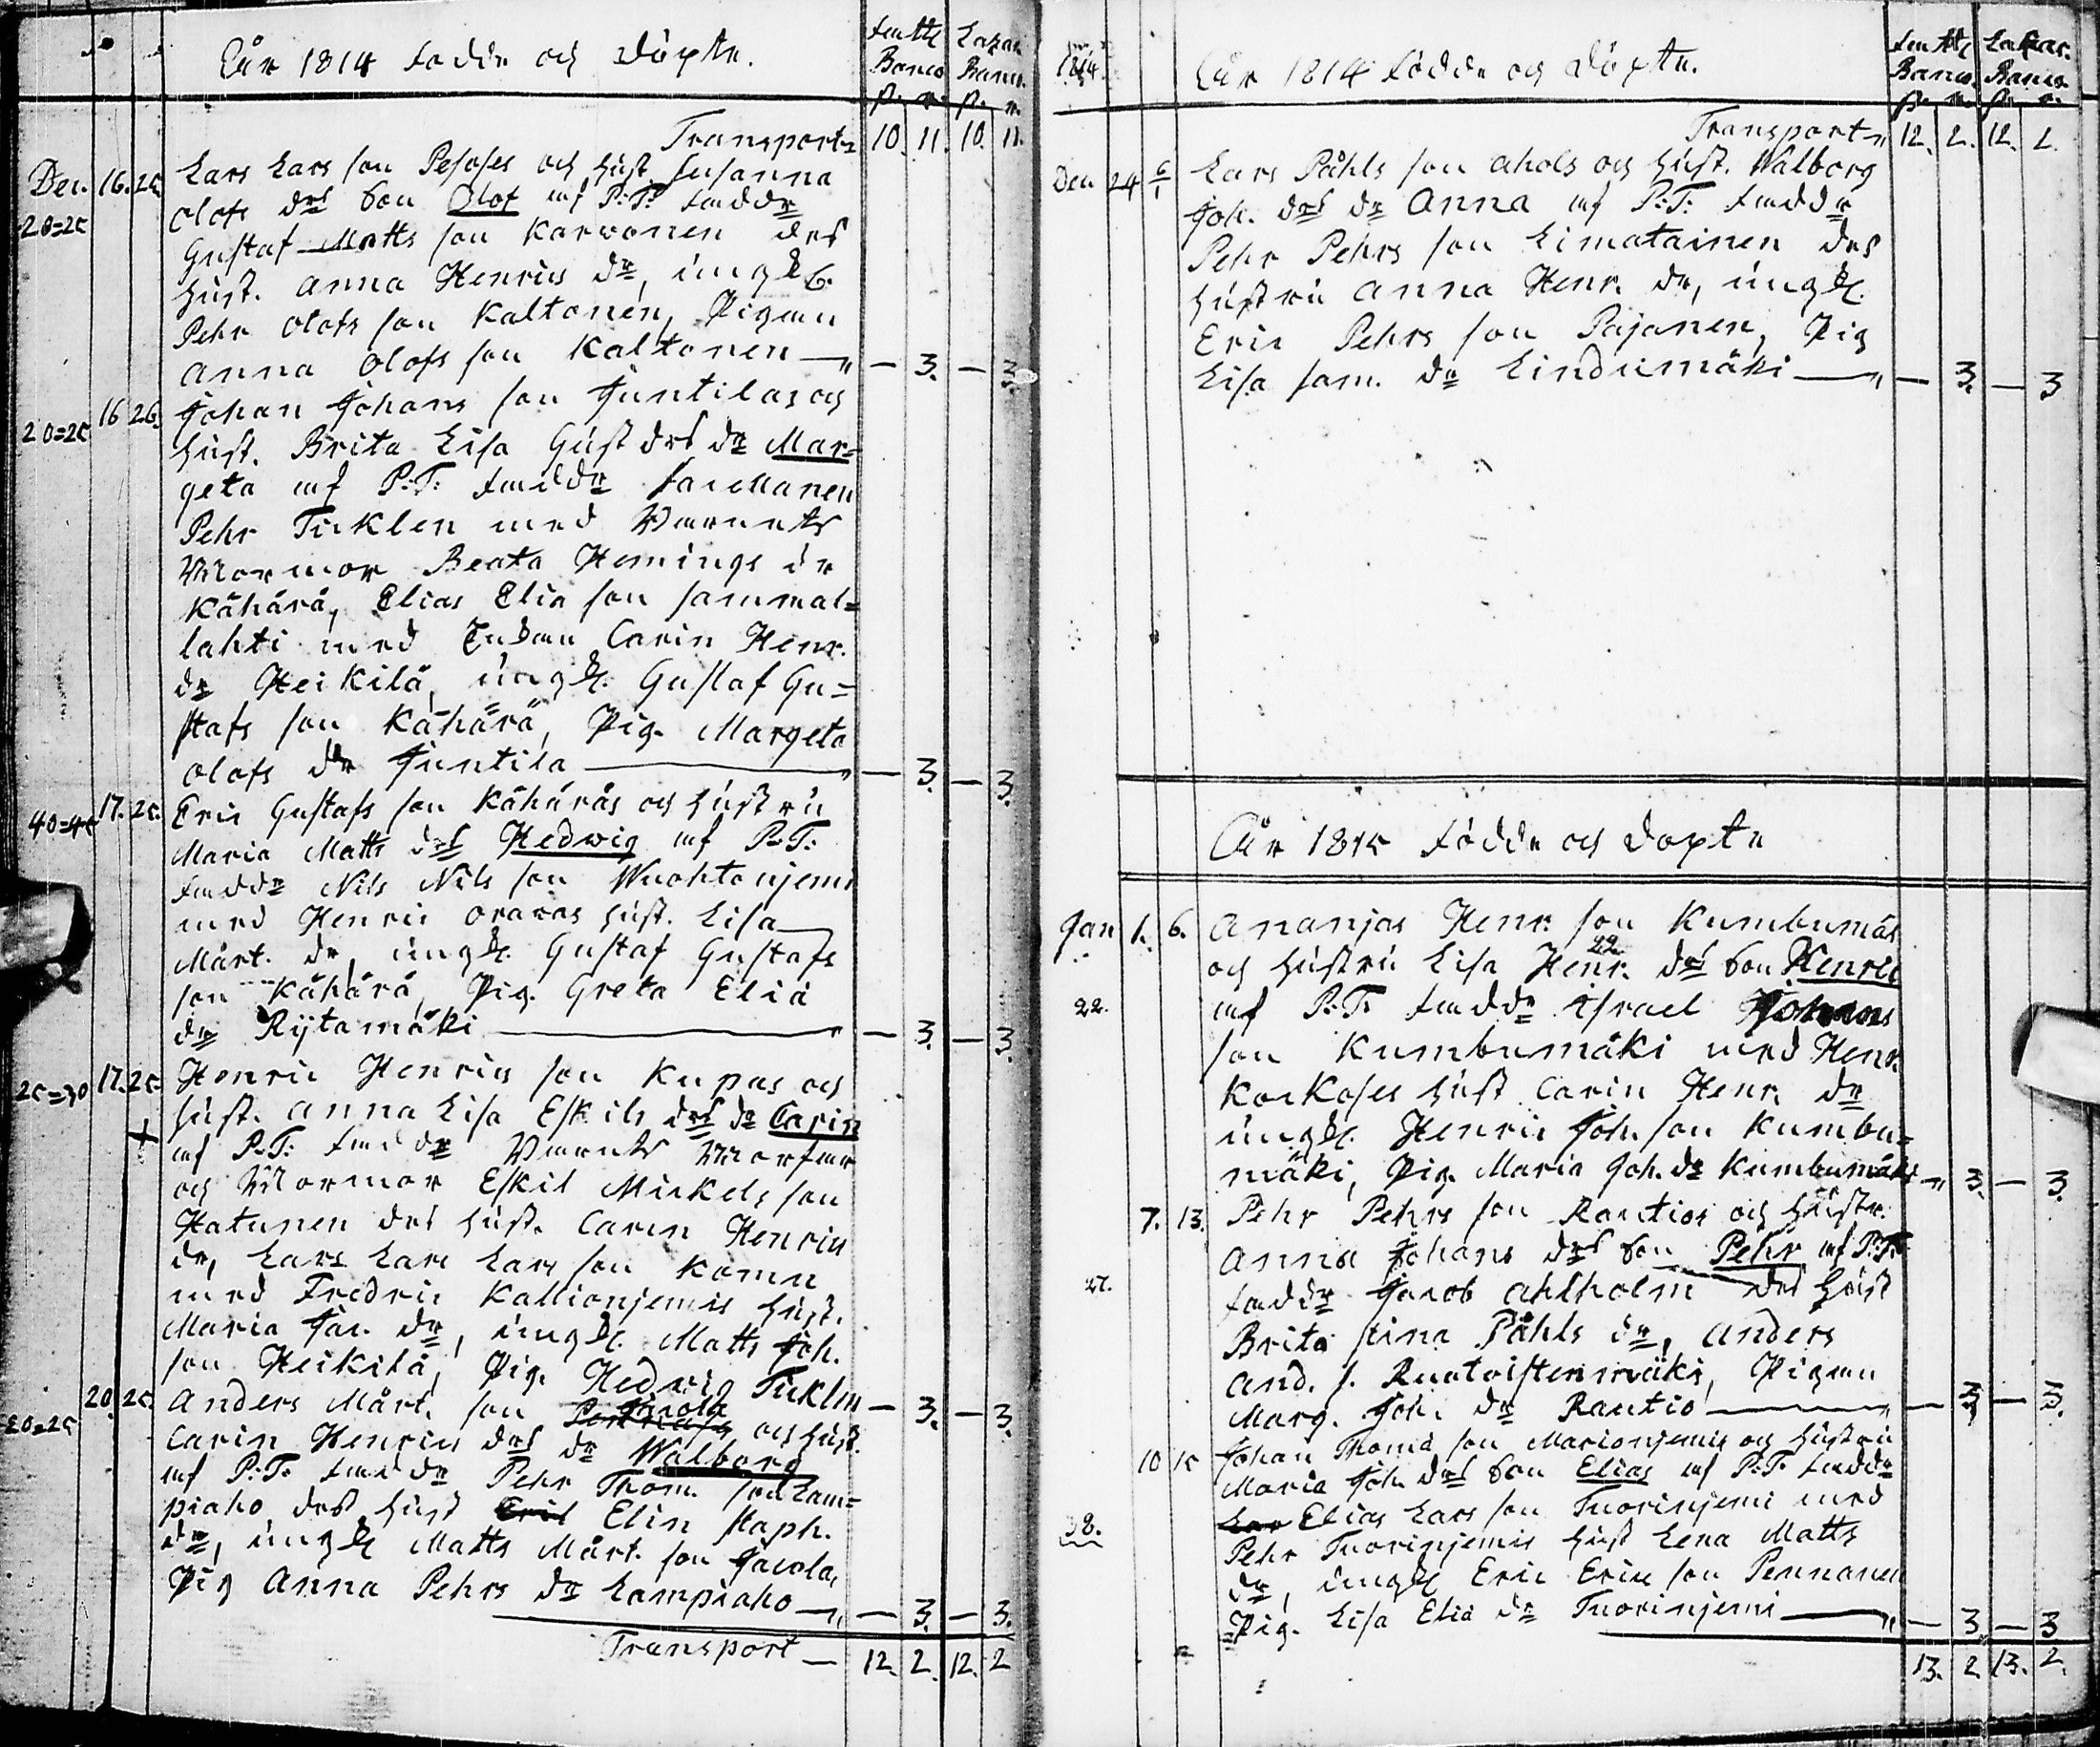 År 1814 födde och döpte.
Transport 10. 11. 10. 11.
Dec. 16. 25. Lars Lars son Pesoses och hust. Susanna
20=25 Olofs drs Son Olof af P:T: faddr
Gustaf Matts son Karvonen des
hust. Anna Henrics dr, ungk.
Pehr Olofs son Kaltonen, Pigan
Anna Olofs son Kaltonen — 3. — 3.
16 26. Johan Johans son Juntilas och
20=25 hust. Brita Lisa Gust drs dr Mar=
geta af P:T: faddr
Pehr Ticklen med Barnets
Mormor Beata Hemings dr
Kähärä, Elias Elia son Sammal=
lahti med Enkan Carin Henr.
dr Heikilä, ungk. Gustaf Gu=
stafs son Kähärä, Pig. Margeta
Olofs dr Juntila — 3. — 3.
40=45 17. 25. Eric Gustafs son Kähäräs och hustru
Maria Matts drs Hedwig af P:T:
faddr Nils Nils son Wuohtonjemi
med Henric Oravas hust. Lisa
Mårt. dr, ungk. Gustaf Gustafs
son Kähärä, Pig. Greta Eliä
dr Rytamäki — 3. — 3.
25=30 17. 25. Henric Henrics son Kupas och
hust. Anna Lisa Eskils drs dr Carin
+ af P:T: faddr Barnets Morfar
och Mormor Eskil Mickels son
Hatunen des hust. Carin Henrics
dr, Lars Lars Lars son Komu
med Fredric Kallionjemis hust.
Maria Jac. dr, ungk. Matts Joh.
son Heikilä, Pig. Hedvig Ticklen — 3. — 3.
20. 25. Anders Mårt. son Jacola och hust.
20=25 Carin Henrics drs dr Walborg
af P:T: faddr Pehr Thom. son Lam=
piaho des hust Eric Elin Staph.
dr, ungk Matts Mårt. son Jacola,
Pig Anna Pehrs dr Lampiaho — 3. — 3.
Transport — 12. 2. 12. 2
1814. År 1814 födde och döpte.
Transport 12. 2. 12. 2.
Den 24 6/1 Lars Påhls son Ahols och hust. Walborg
Joh. drs dr Anna af P:T: faddr
Pehr Pehrs son Limatainen des
hustru Anna Henr. dr, ungk.
Eric Pehrs son Pajanen, Pig
Lisa Sam. dr Lindumäki — 3. — 3
År 1815 födde och döpte
Jan 1. 6. Ananjas Henr. son Kumbumäs
22
och hustru Lisa Henr. drs Son Henric
22. af P:T: faddr Israel Johans
son Kumbumäki med Henr.
Korkoses hust Carin Henr. dr
ungk. Henric Joh. son Kumbu=
mäki, Pig. Maria Joh. dr Kumbumäki 3. — 3.
7. 13. Pehr Pehrs son Rautios och hustr.
Anna Johans drs Son Pehr af P:T:
27. faddr Jacob Ahlholm des hust
Brita Stina Påhls dr, Anders
And. s. Ruotoistenmäki, Pigan
Marg. Joh. dr Rautio — 3 — 3.
10 15 Johan Thoma son Marionjemis och hustru
Maria Joh. drs Son Elias af P:T: faddr
38. Lar Elias Lars son Tuorinjemi med
Pehr Tuorinjemis hust Lena Matts
dr, ungk Eric Erics son Pennanen
Pig. Lisa Eliä dr Tuorinjemi — 3 — 3
13. 2 13. 2.